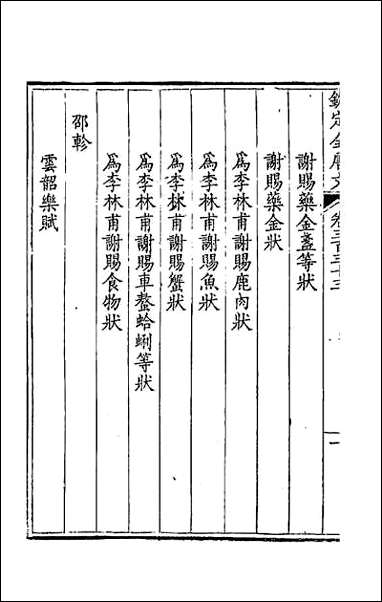 欽定全唐文
卷三百三十三
一
謝賜藥金盞等狀
謝賜藥金狀
爲李林甫謝賜鹿肉狀
爲李林甫謝賜魚狀
爲李林甫謝賜蟹狀
爲李林甫謝賜車螯蛤蜊等狀
爲李林甫謝賜食物狀
邵軫
雲韶樂賦